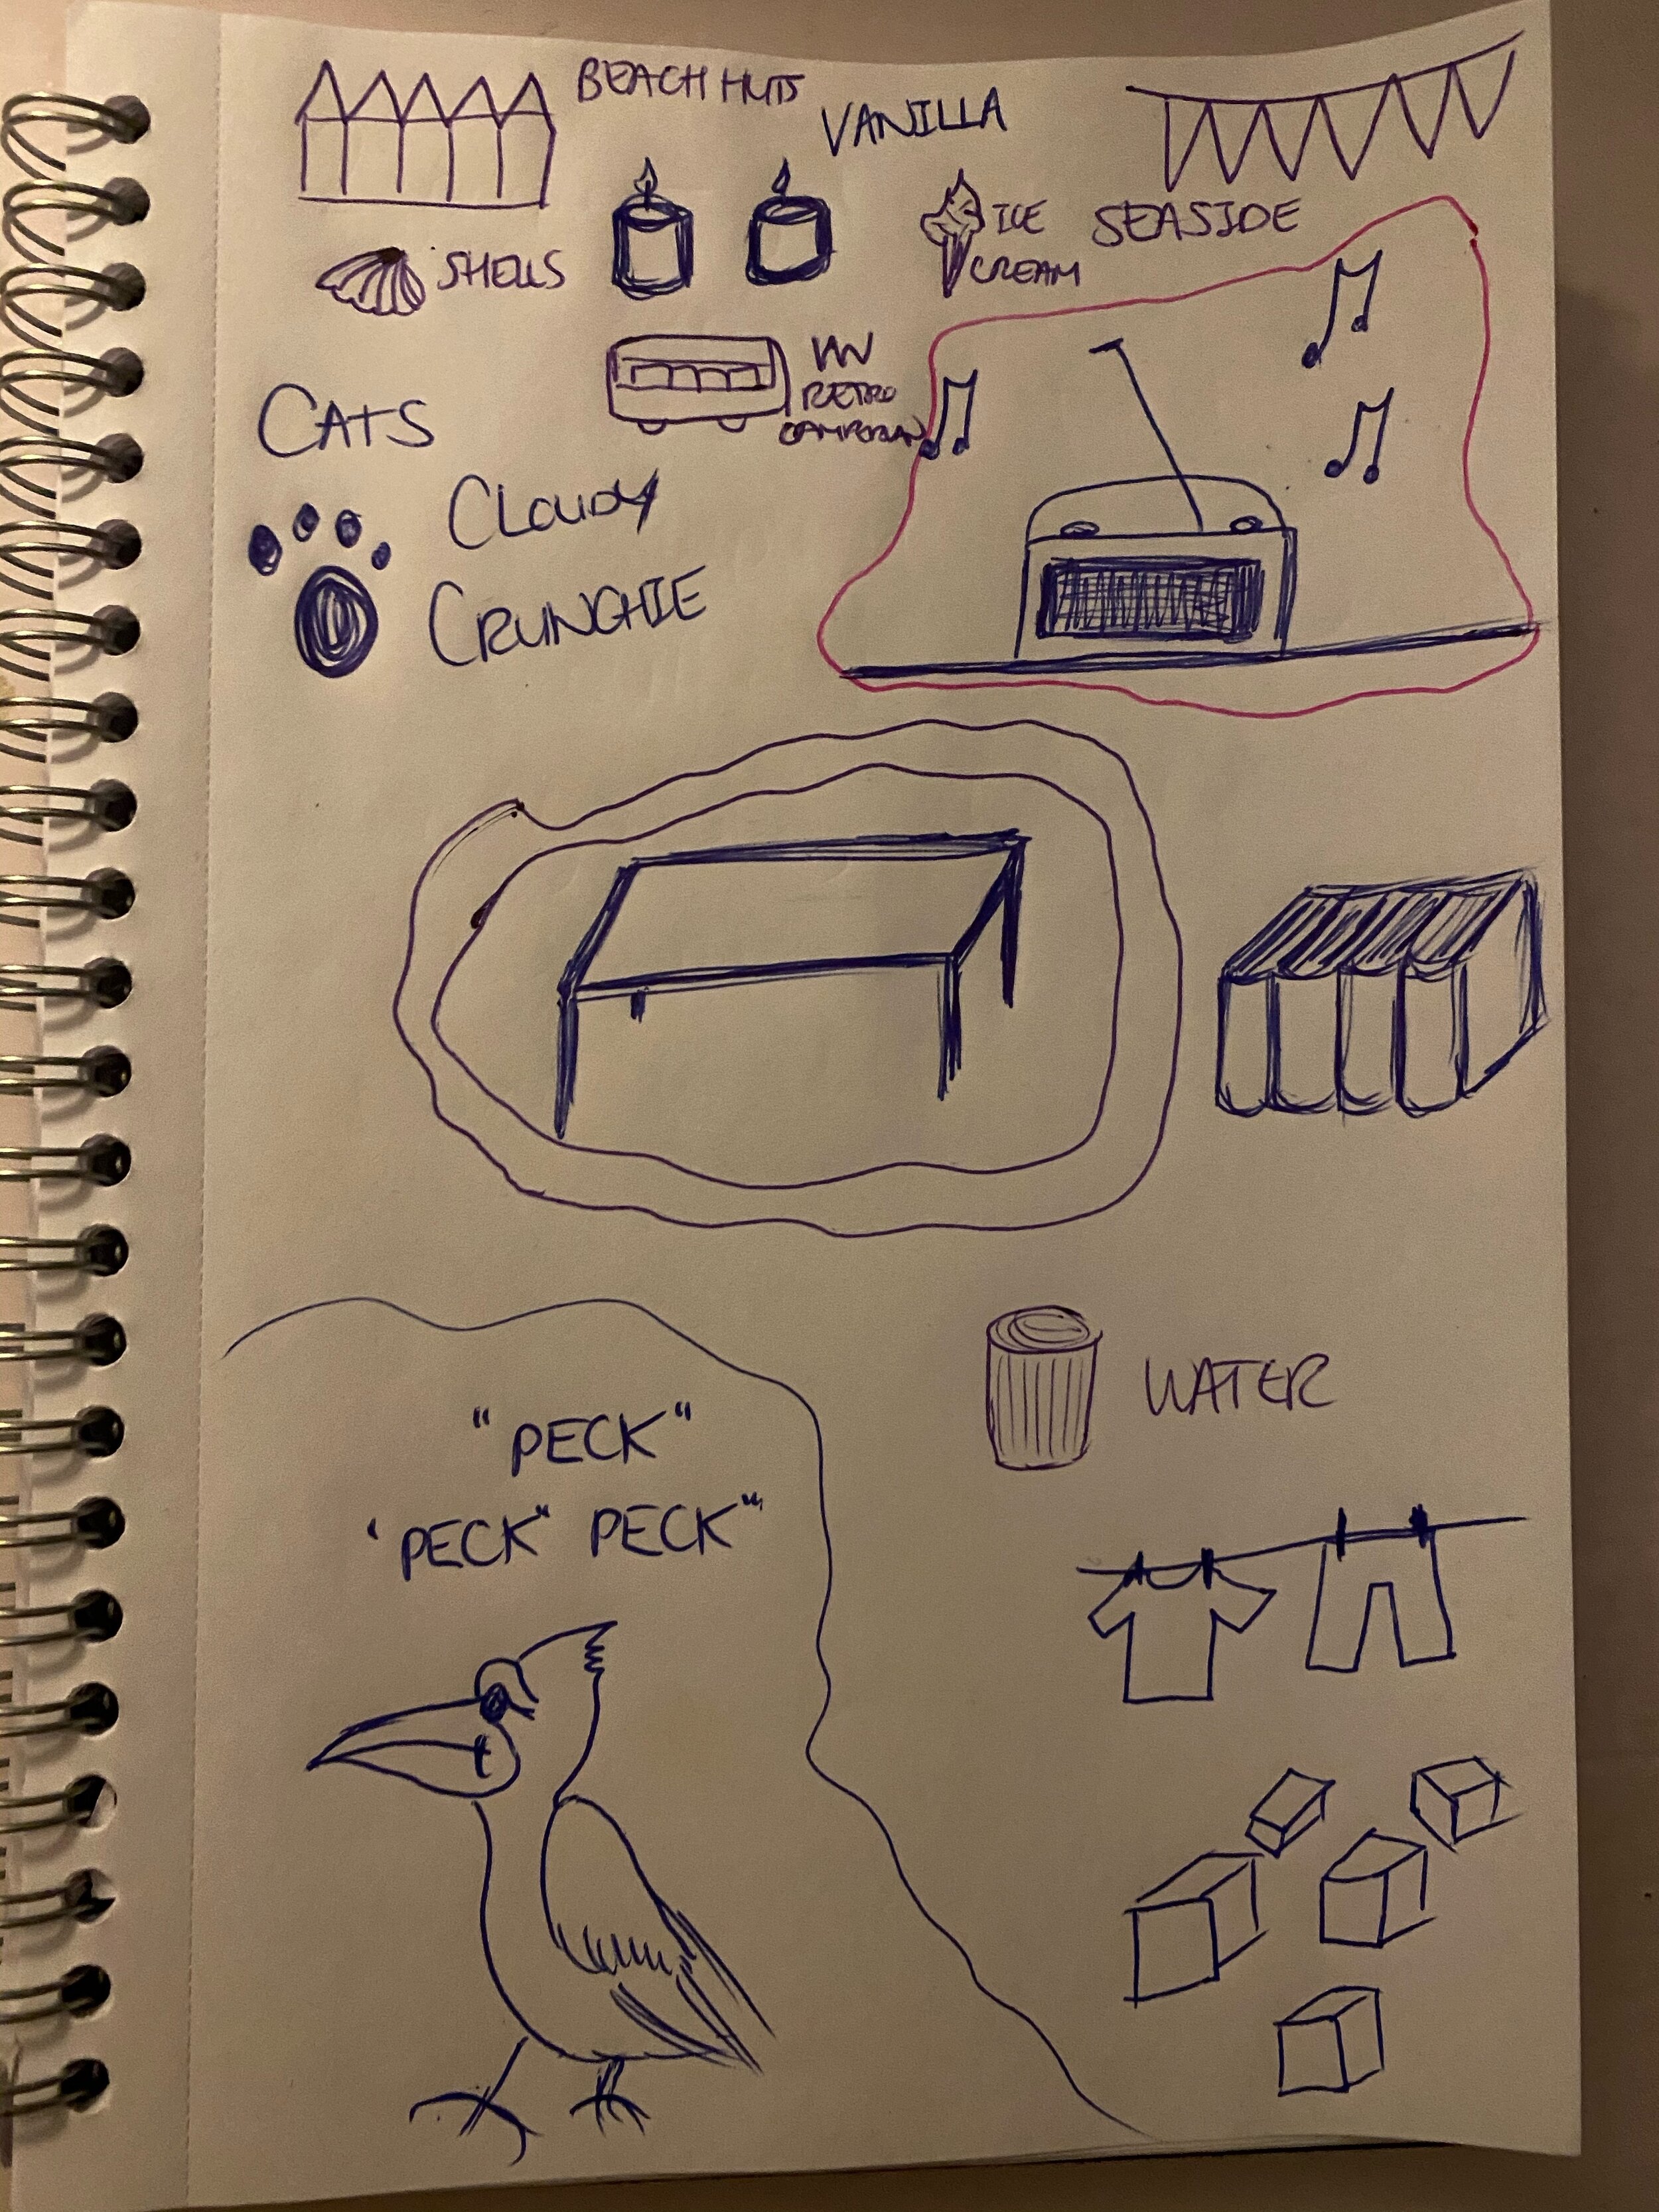 BEACH HUTS
VANILLA
SHELLS
ICE
CREAM
SEASIDE
VW
RETRO
CAMPERVAN
CATS
CLOUDY
CRUNCHIE
"PECK"
'PECK" PECK"
WATER